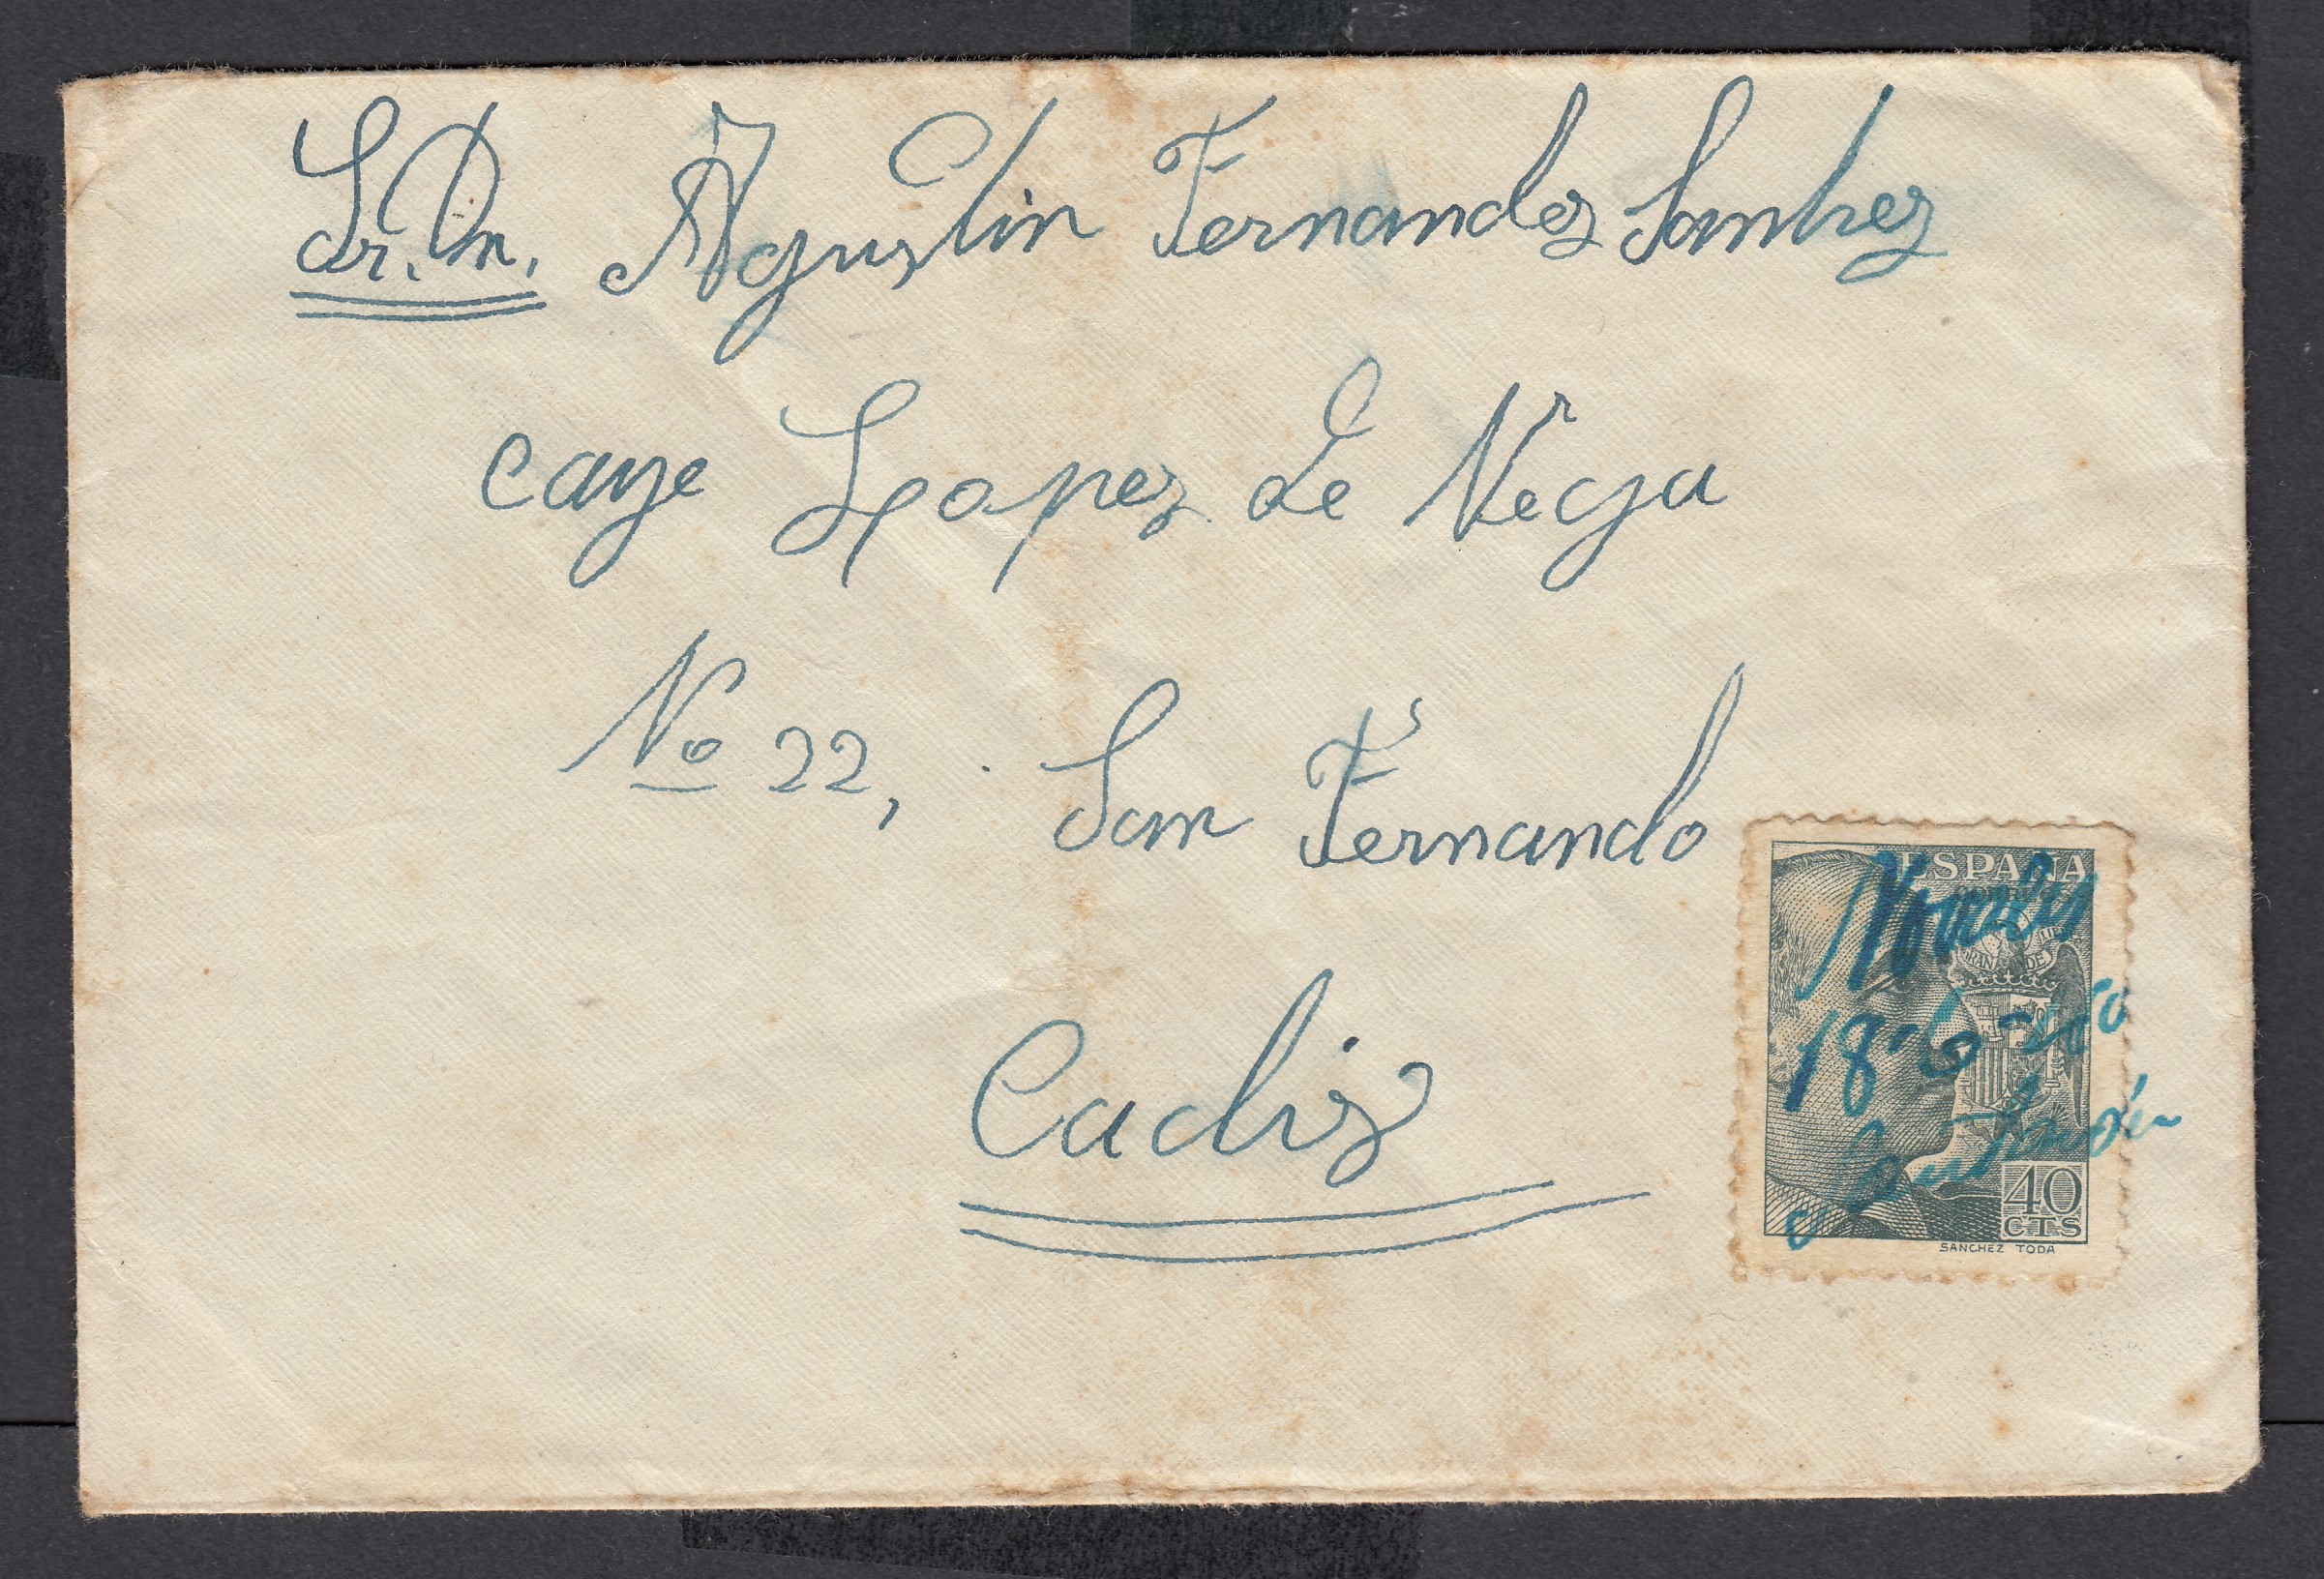 Sr. Dn. Agustin Fernandez Sanhez
caye Lopez de Vega
No 22, San Fernando
Cadiz
ESPAÑA
18-6-
40
CTS
SANCHEZ TODA